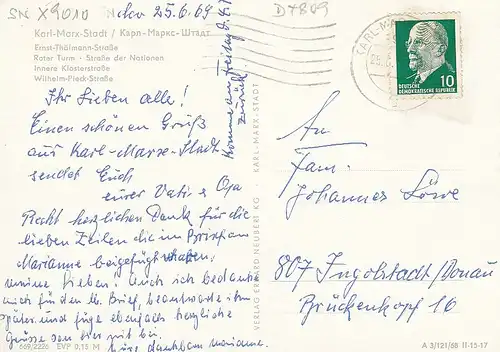 SN X9010
den 25.6.69
D 7809
Karl-Marx-Stadt / Карл-Маркс-Штадт
Ernst-Thälmann-Straße
Roter Turm · Straße der Nationen
Innere Klosterstraße
Wilhelm-Pieck-Straße
Ihr Lieben alle!
Einen schönen Gruß
aus Karl-Marx-Stadt
sendet Euch
eurer Vati & Opa
Recht herzlichen Dank für die
lieben Zeilen die im Brief an
Marianne beigefügt waren,
meine Lieben! Auch ich bedanke
mich für den lb. Brief, beantworte ihn
später und füge ebenfalls herzliche
Grüsse bei
Eure dankbare Marianne.
Komme Freitag d. 4.7.
zurück.
VERLAG ERHARD NEUBERT KG · KARL-MARX-STADT
669/2226 EVP 0,15 M
KARL-MARX
DEUTSCHE
DEMOKRATISCHE REPUBLIK
10
An
Fam.
Johannes Löwe
807 Ingolstadt/Donau
Brückenkopf 10
A 3/121/68 II-15-17